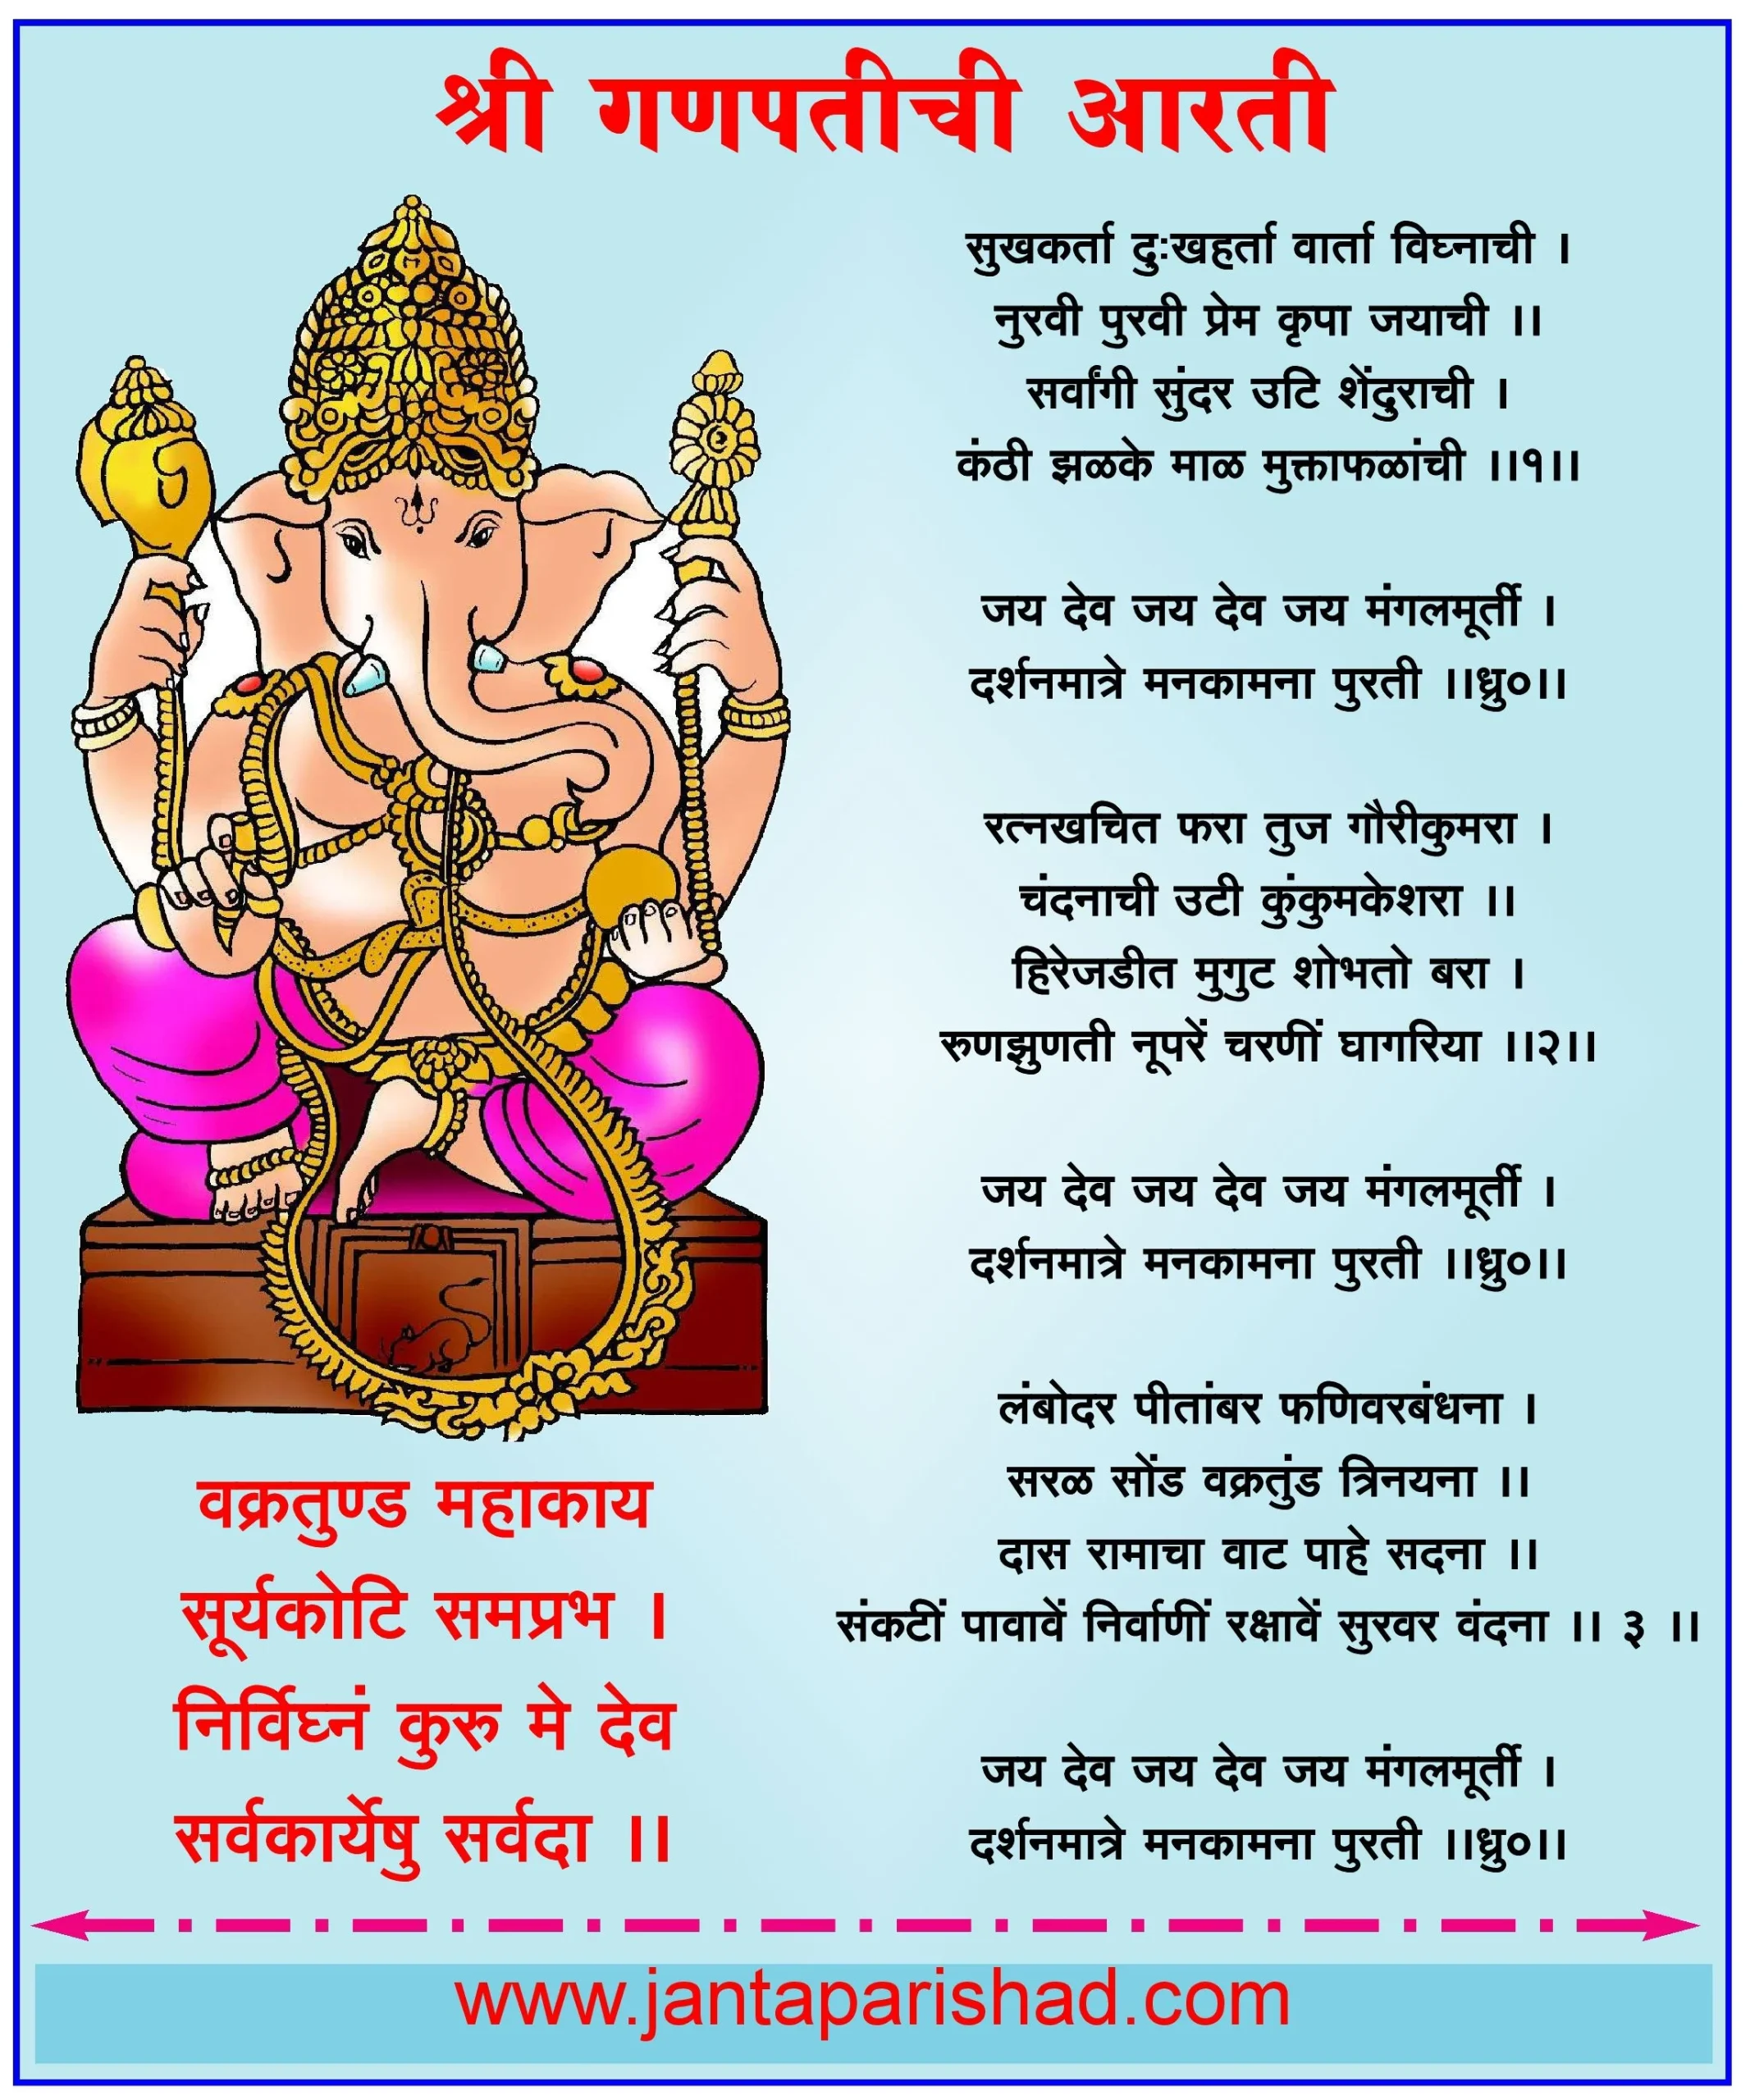 श्री गणपतीची आरती
सुखकर्ता दुःखहर्ता वार्ता विघ्नाची ।
नुरवी पुरवी प्रेम कृपा जयाची ।।
सर्वांगी सुंदर उटि शेंदुराची ।
कंठी झळके माळ मुक्ताफळांची ।।१।।
जय देव जय देव जय मंगलमूर्ती ।
दर्शनमात्रे मनकामना पुरती ।।ध्रु०।।
रत्नखचित फरा तुज गौरीकुमरा ।
चंदनाची उटी कुंकुमकेशरा ।।
हिरेजडीत मुगुट शोभतो बरा ।
रुणझुणती नूपरें चरणीं घागरिया ।।२।।
जय देव जय देव जय मंगलमूर्ती ।
दर्शनमात्रे मनकामना पुरती ।।ध्रु०।।
लंबोदर पीतांबर फणिवरबंधना ।
सरळ सोंड वक्रतुंड त्रिनयना ।।
दास रामाचा वाट पाहे सदना ।।
संकटीं पावावें निर्वाणीं रक्षावें सुरवर वंदना ।। ३ ।।
जय देव जय देव जय मंगलमूर्ती ।
दर्शनमात्रे मनकामना पुरती ।।ध्रु०।।
वक्रतुण्ड महाकाय
सूर्यकोटि समप्रभ ।
निर्विघ्नं कुरु मे देव
सर्वकार्येषु सर्वदा ।।
www.jantaparishad.com